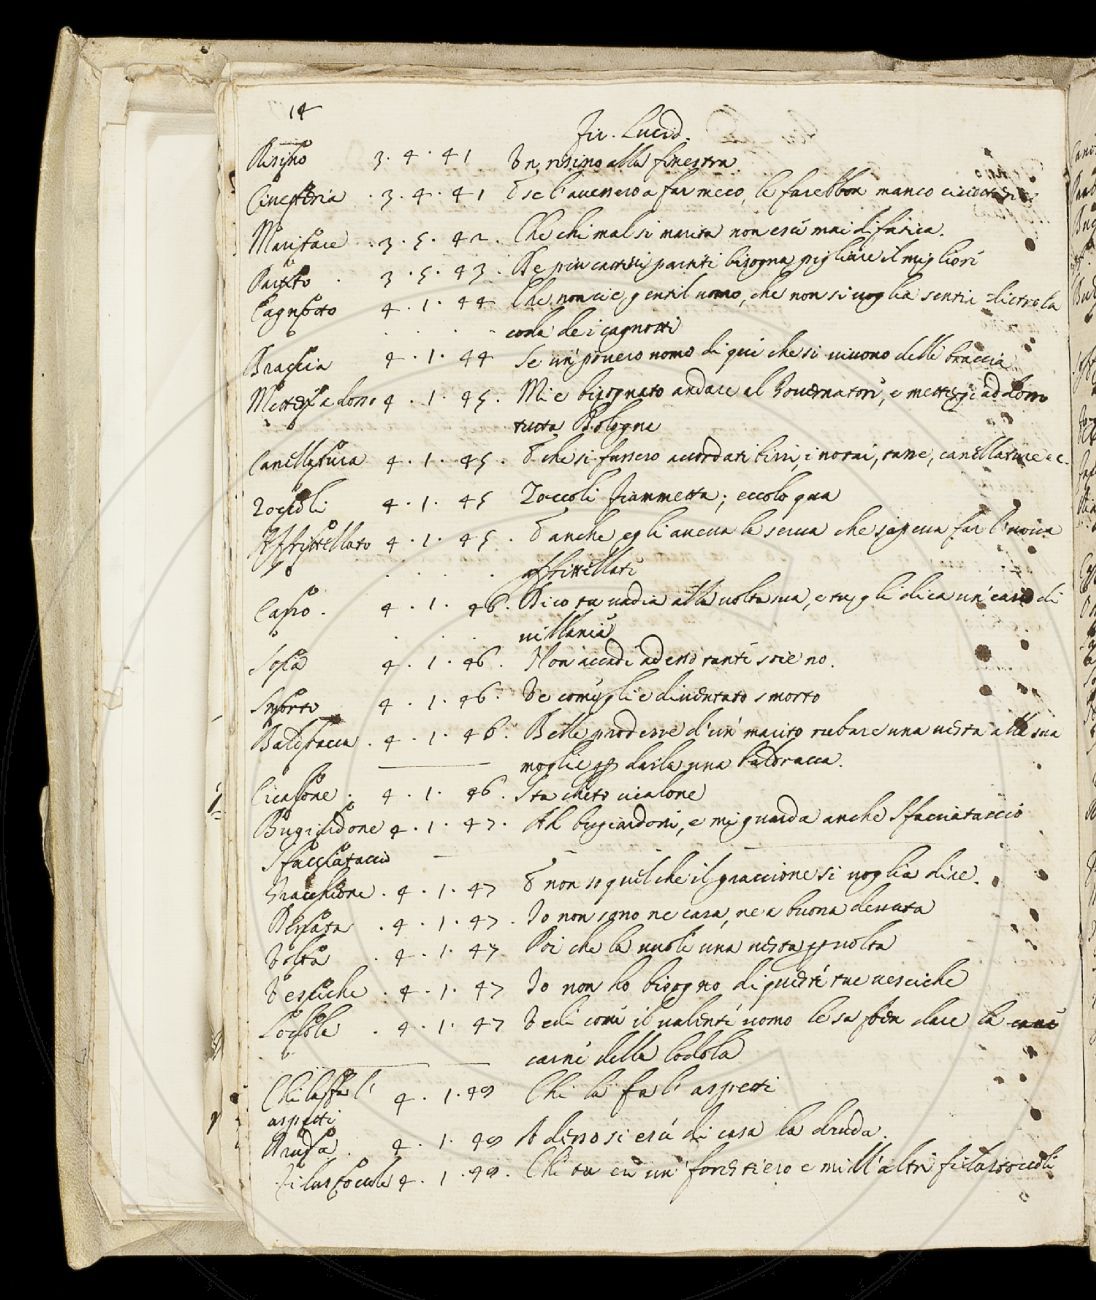 14
Fir. Lucid.
Risino 3. 4. 41 Un risino alla finestra
Cinesteria . 3. 4. 41 E se l'avessero a far meco, le farebbon manco
Maritare . 3. 5. 42. Che chi mal si marita non esci mai di fatica.
Partito . 3. 5. 43. De più cattivi partiti bisogna pigliare il migliori
Cagnotto 4. 1. 44 Che non ci è gentil uomo, che non si voglia sentir dietro la
coda de i cagnotti
Braccia 4. 1. 44 Se un povero uomo di qui che si vivono delle braccia
Mettersi a dosso 4. 1. 45. Mi è bisognato andare al Governatori, e mettersi addosso
tutta Bologna
Cancellatura 4. 1. 45. E che si fussero accordati birri, i notai, tasse, cancellature ec.
Zoccoli 4. 1. 45 Zoccoli Fiammetta; eccolo qua
Affrittellato 4. 1. 45. E anche egli aveva la serva che sapeva far l'uova
affrittellati
Casso . 4. 1. 46. Dico tu vadia alla volta sua, e tu gli dica un' casso di
villania
4. 1. 46. Non accadi adesso tanti
Smorto 4. 1. 46. Ve com'egli è diventato smorto
Baldracca . 4. 1. 46. Belle prodezze d'un' marito rubare una vesta alla sua
moglie per darla a una Baldracca.
Cicalone . 4. 1. 46. Sta cheto cicalone
Bugiardone 4. 1. 47. Ah bugiardoni, e mi guarda anche sfacciataccio
Sfacciataccio
Gracchione . 4. 1. 47 E non so quel che il graccione si voglia dire.
Derrata . 4. 1. 47. Io non sono ne cara, ne a buona derrata
Volta . 4. 1. 47 Poi che la vuoli una vesta per volta
Vesciche . 4. 1. 47 Io non ho bisogno di questi tue vesciche
Lodola . 4. 1. 47 Vedi comi il valenti uomo le sa ben dare la
carni della lodola
Chi la fa l'
aspetti 4. 1. 49 Chi la fa l' aspetti
Druda . 4. 1. 49 Adesso si esci di casa la druda.
Filastoccole 4. 1. 49. Chi tu eri un' forestiero e mill' altri filastoccoli